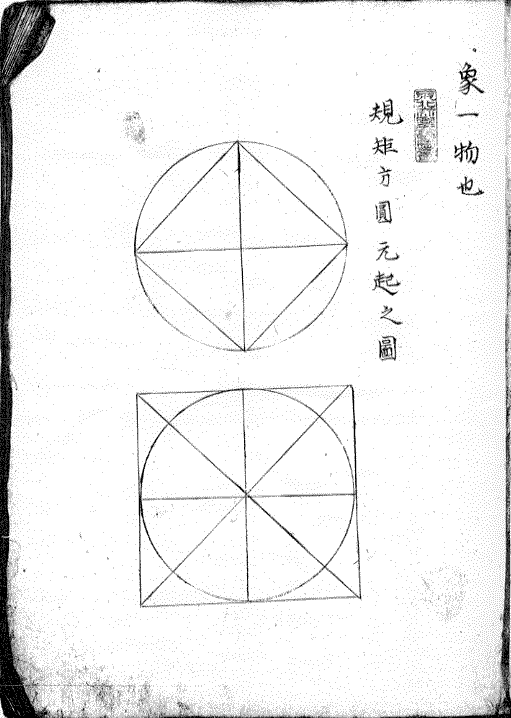 象一物也
規矩方圓元起之圖